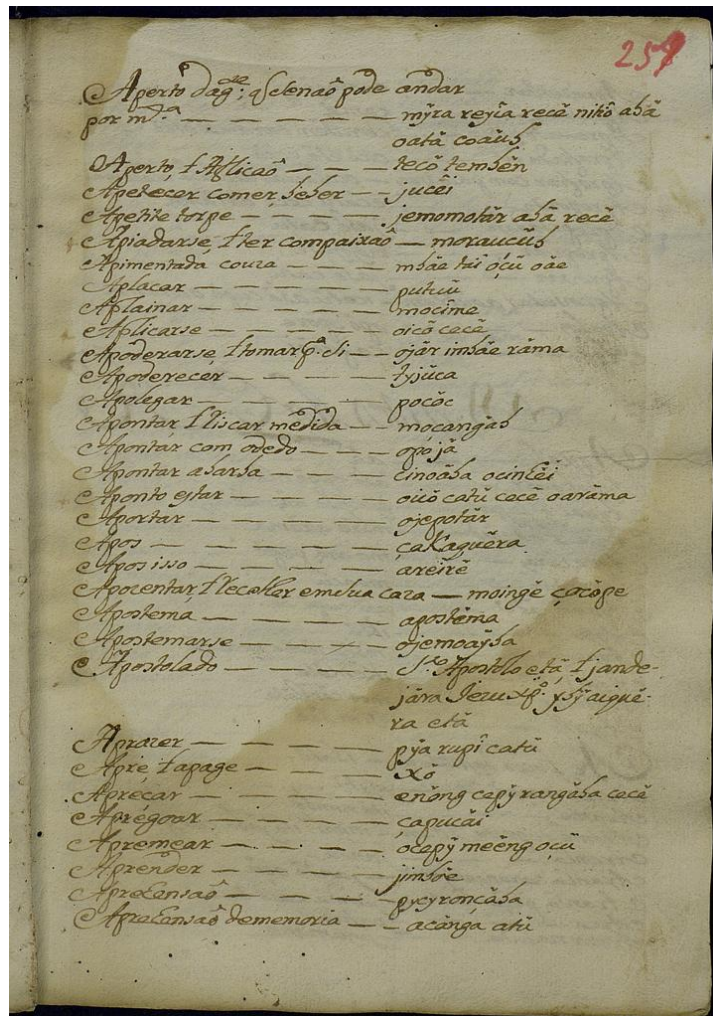 257
Aperto dag.te, q̃ se não póde andar
por m.ta — — — — — mỹra reyîa recê nitiô abã
oatã coáub
Aperto, t Afflicaô — — — tecô tembẽn
Apetecer comer, beber — — jucêi
Apetite torpe — — — — jemomotãr abâ recê
Apiadarse, t ter compaixaô — moraucũb
Apimentada couza — — — mbâe taî oçũ oâe
Aplacar — — — — — putuũ
Aplainar — — — — — mocîme
Aplicarse — — — — — oicô cecê
Apoderarse, t tomar p.a si — — ojãr imbãe rãma
Apoderecer — — — — tyjũca
Apolegar — — — — — pocõc
Apontar t liscar mẽdida — — moçangãb
Apontar com odedo — — — opojâ
Apontar abarba — — —
Aponto estar — — — — oicô catũ cecê oarãma
Aportar — — — — — ojepotãr
Apos — — — — — — çakaquẽra
Apos isso — — — — — areirẽ
Apozentar t recolher emsua caza — moingê çocôpe
Apostema — — — — apostẽma
Apostemarse — — — — ojemoaỹba
Apostolado — — — — S.to Apostolo etâ, t jande-
jâra Jezu xp.o
ra etâ
Aprazer — — — — — pỹa rupî catũ
Apre, t apage — — — — xô
Apreçar — — — — — enõng cepỹ rangãba cecê
Apregoar — — — — — çapucãi
Apremear — — — — ocepỹ meẽng oçũ
Aprender — — — — jimbôe
Aprehensaô — — — — pycyronçãba
Aprehensaô dememoria — — acãnga atũ